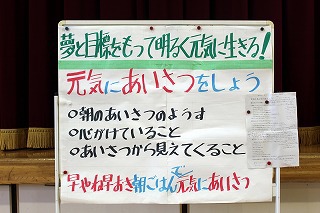 夢と目標をもって明るく元気に生きる！
元気にあいさつをしよう
○朝のあいさつのようす
○心がけていること
○あいさつから見えてくること
早やね早おき朝ごはんで元気にあいさつ